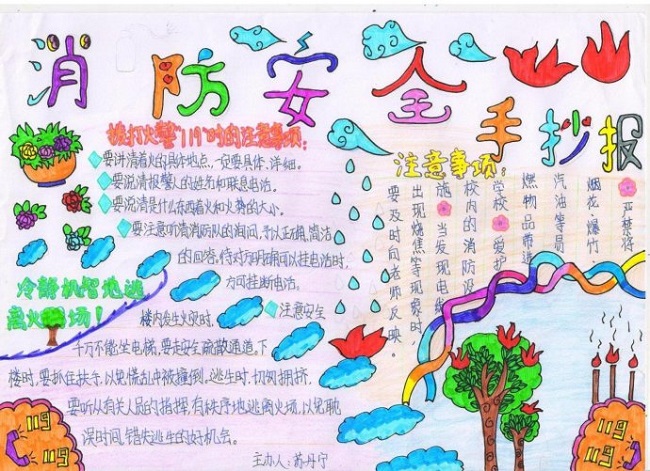 消防安全手抄报
拨打火警"119"时的注意事项:
要讲清着火的具体地点,一定要具体、详细。
要说清报警人的姓名和联系电话。
要说清是什么东西着火和火势的大小。
要注意听清消防队的询问,予以正确,简洁
的回答,待对方明确可以挂电话时,
方可挂断电话。
冷静机智地逃
离火场!
注意安全
楼内发生火灾时,
千万不能坐电梯,要走安全疏散通道。下
楼时,要抓住扶手,以免慌乱中被撞倒。逃生时,切勿拥挤,
要听从有关人员的指挥,有秩序地逃离火场,以免耽
误时间,错失逃生的好机会。
主办人:苏丹宁
注意事项:
严禁将
烟花、爆竹、
汽油等易
燃物品带进
学校 爱护
校内的消防设
施 当发现电线
出现烧焦等现象时,
要及时向老师反映。
119
119
119
119